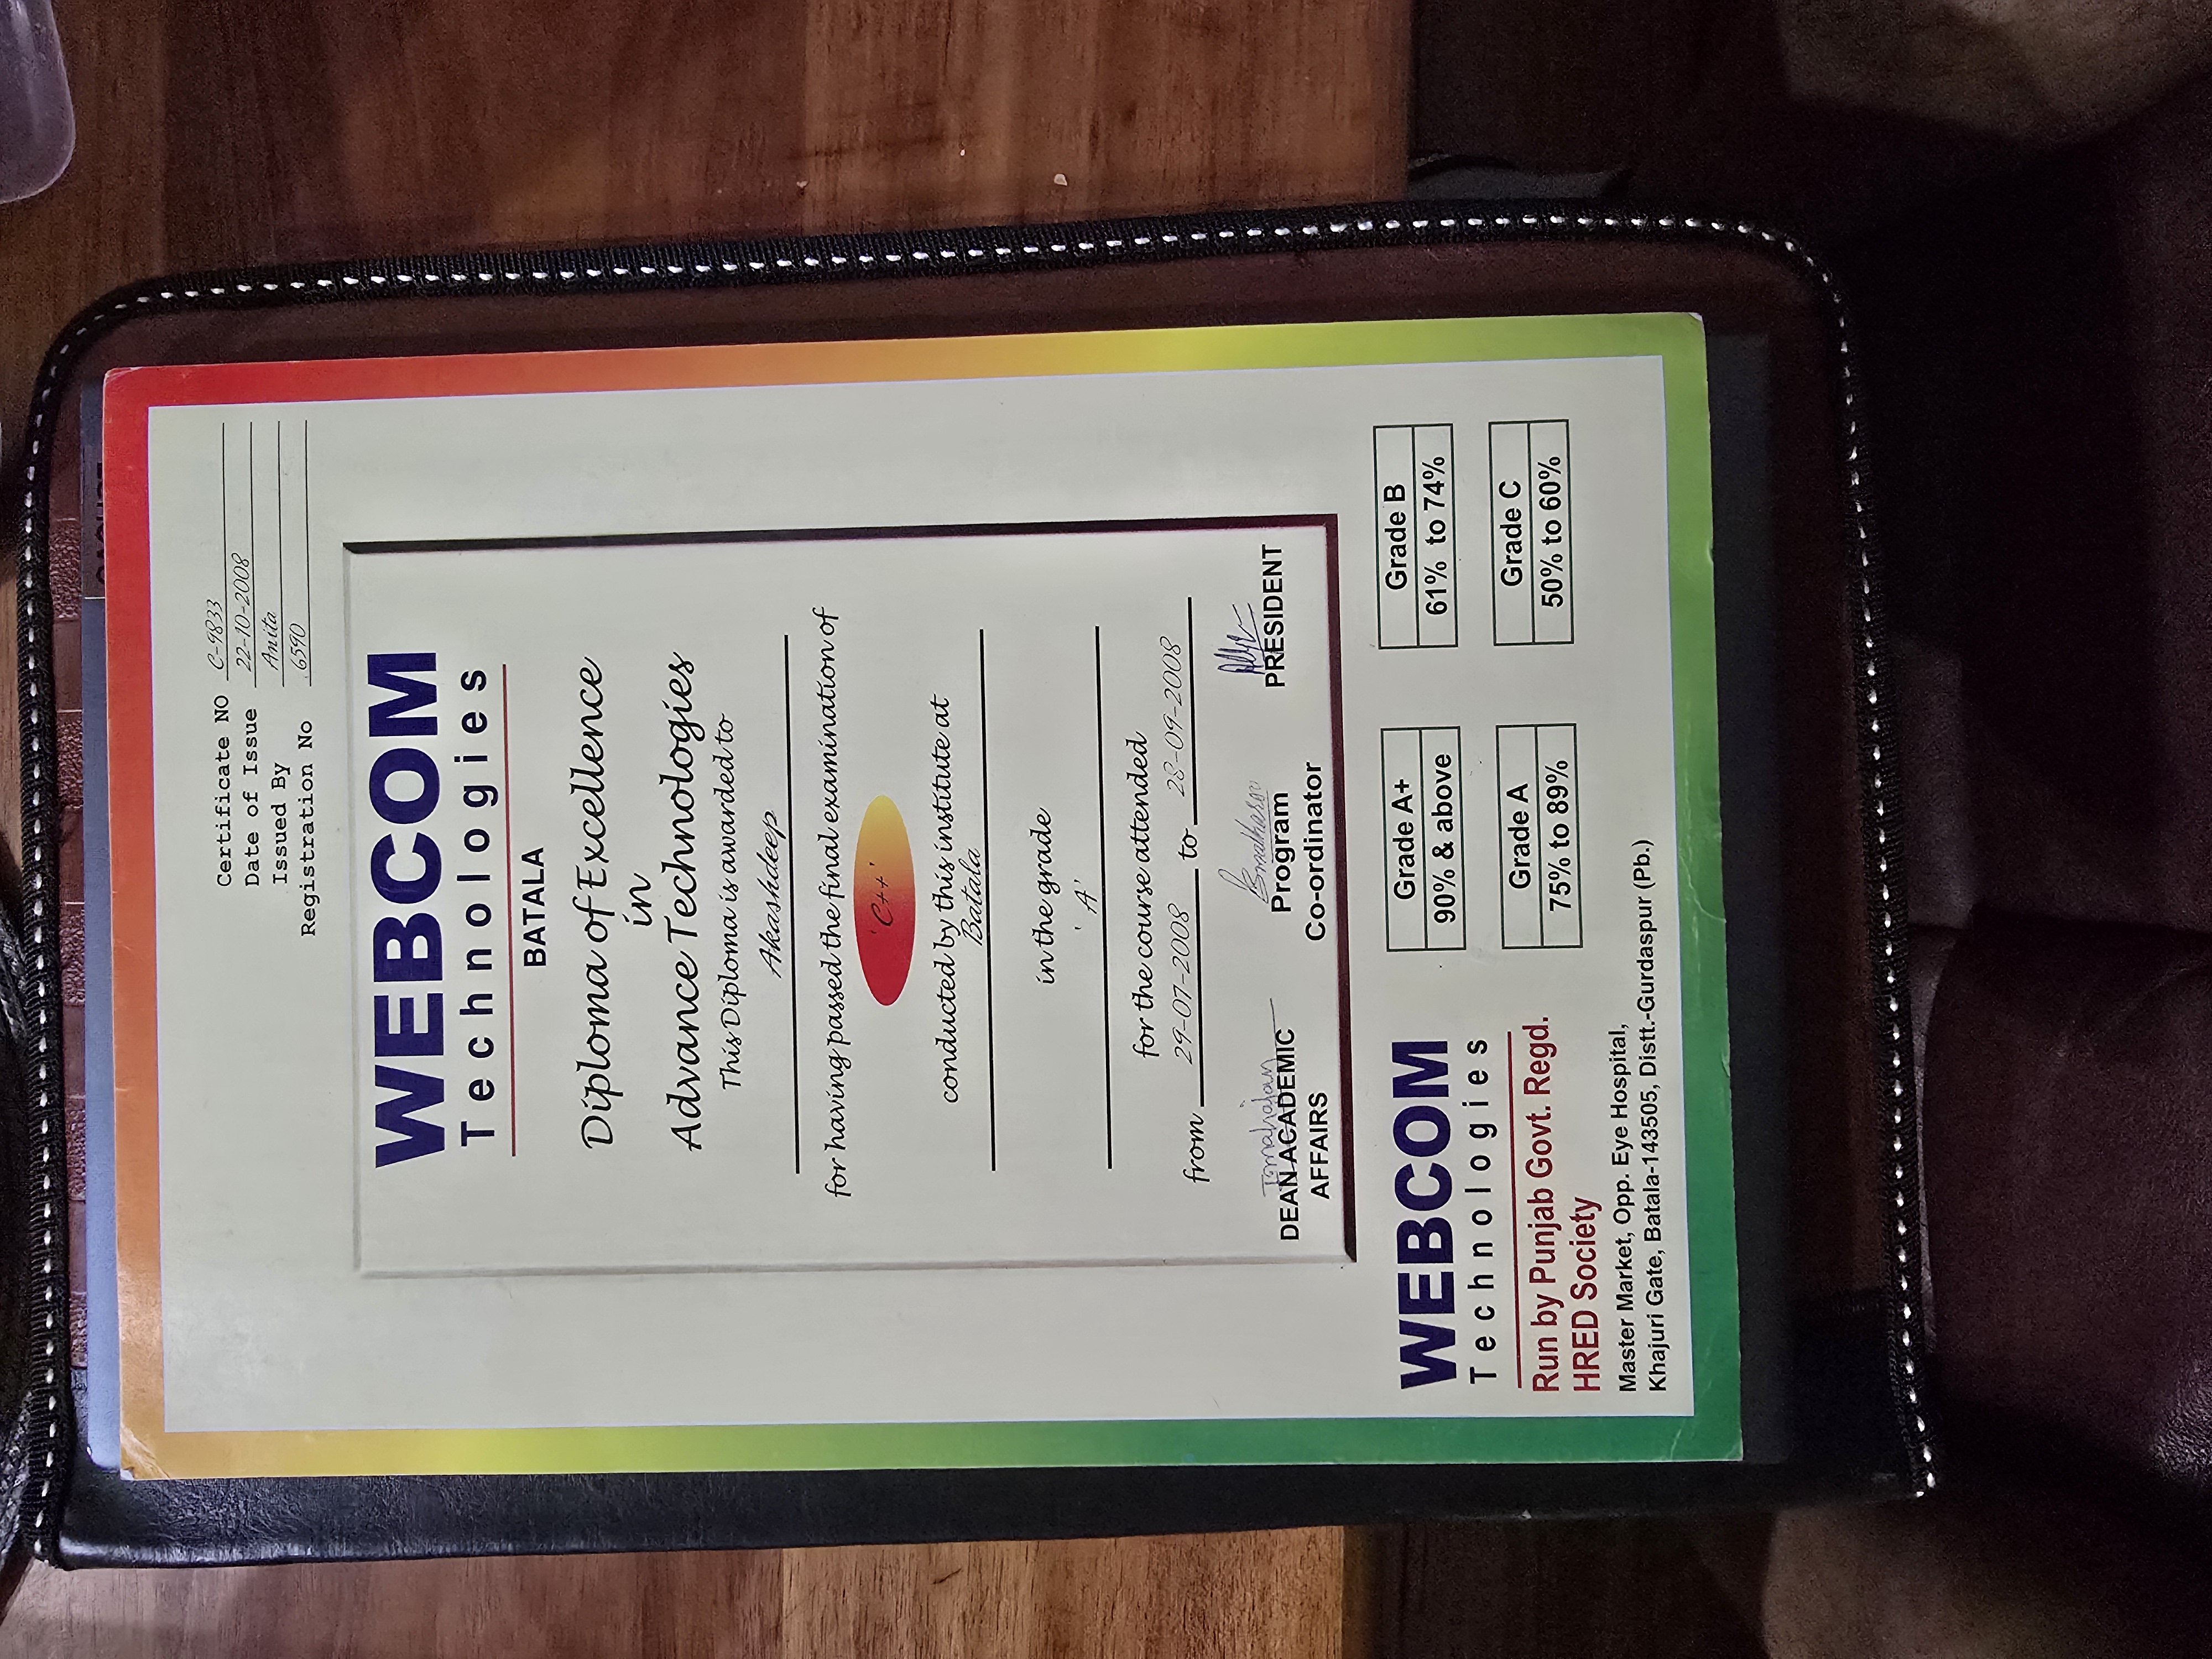 Certificate NO C-9833
Date of Issue 22-10-2008
Issued By Anita
Registration No 6590
WEBCOM
Technologies
BATALA
Diploma of Excellence
in
Advance Technologies
This Diploma is awarded to
Akashdeep
for having passed the final examination of
'C++'
conducted by this institute at
Batala
in the grade
'A'
for the course attended
from 29-07-2008 to 28-09-2008
DEAN ACADEMIC
AFFAIRS
Program
Co-ordinator
PRESIDENT
WEBCOM
Technologies
Run by Punjab Govt. Regd.
HRED Society
Master Market, Opp. Eye Hospital,
Khajuri Gate, Batala-143505, Distt.-Gurdaspur (Pb.)
Grade A+
90% & above
Grade B
61% to 74%
Grade A
75% to 89%
Grade C
50% to 60%